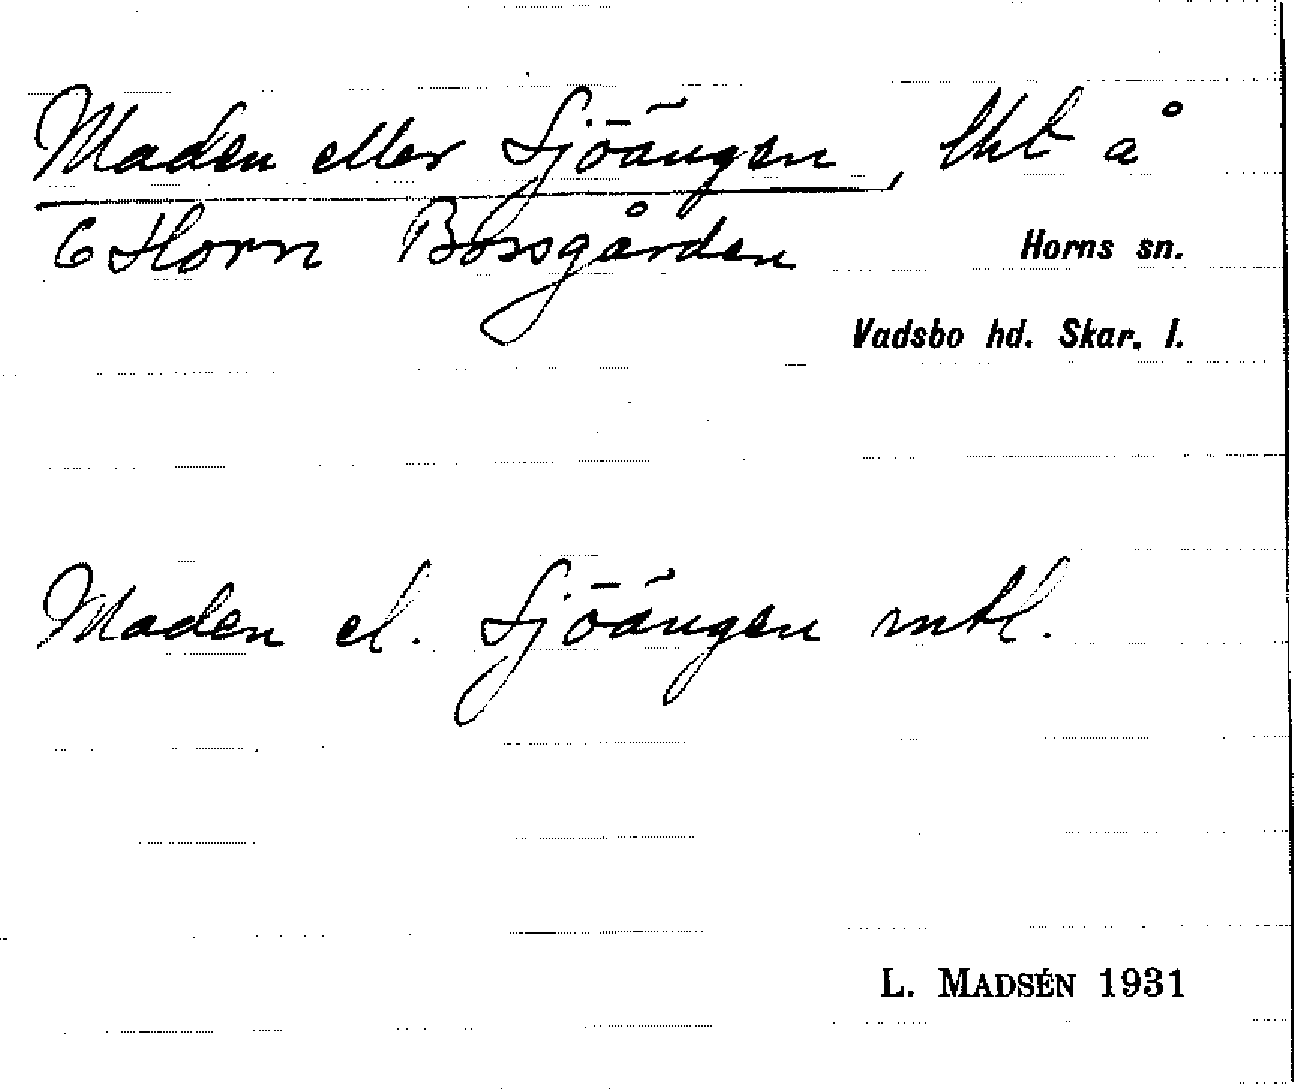 Maden eller Sjöängen, lht å
6 Horn Bossgården
Horns sn.
Vadsbo hd. Skar. l.
Maden el. Sjöängen mtl.
L. MADSÉN 1931